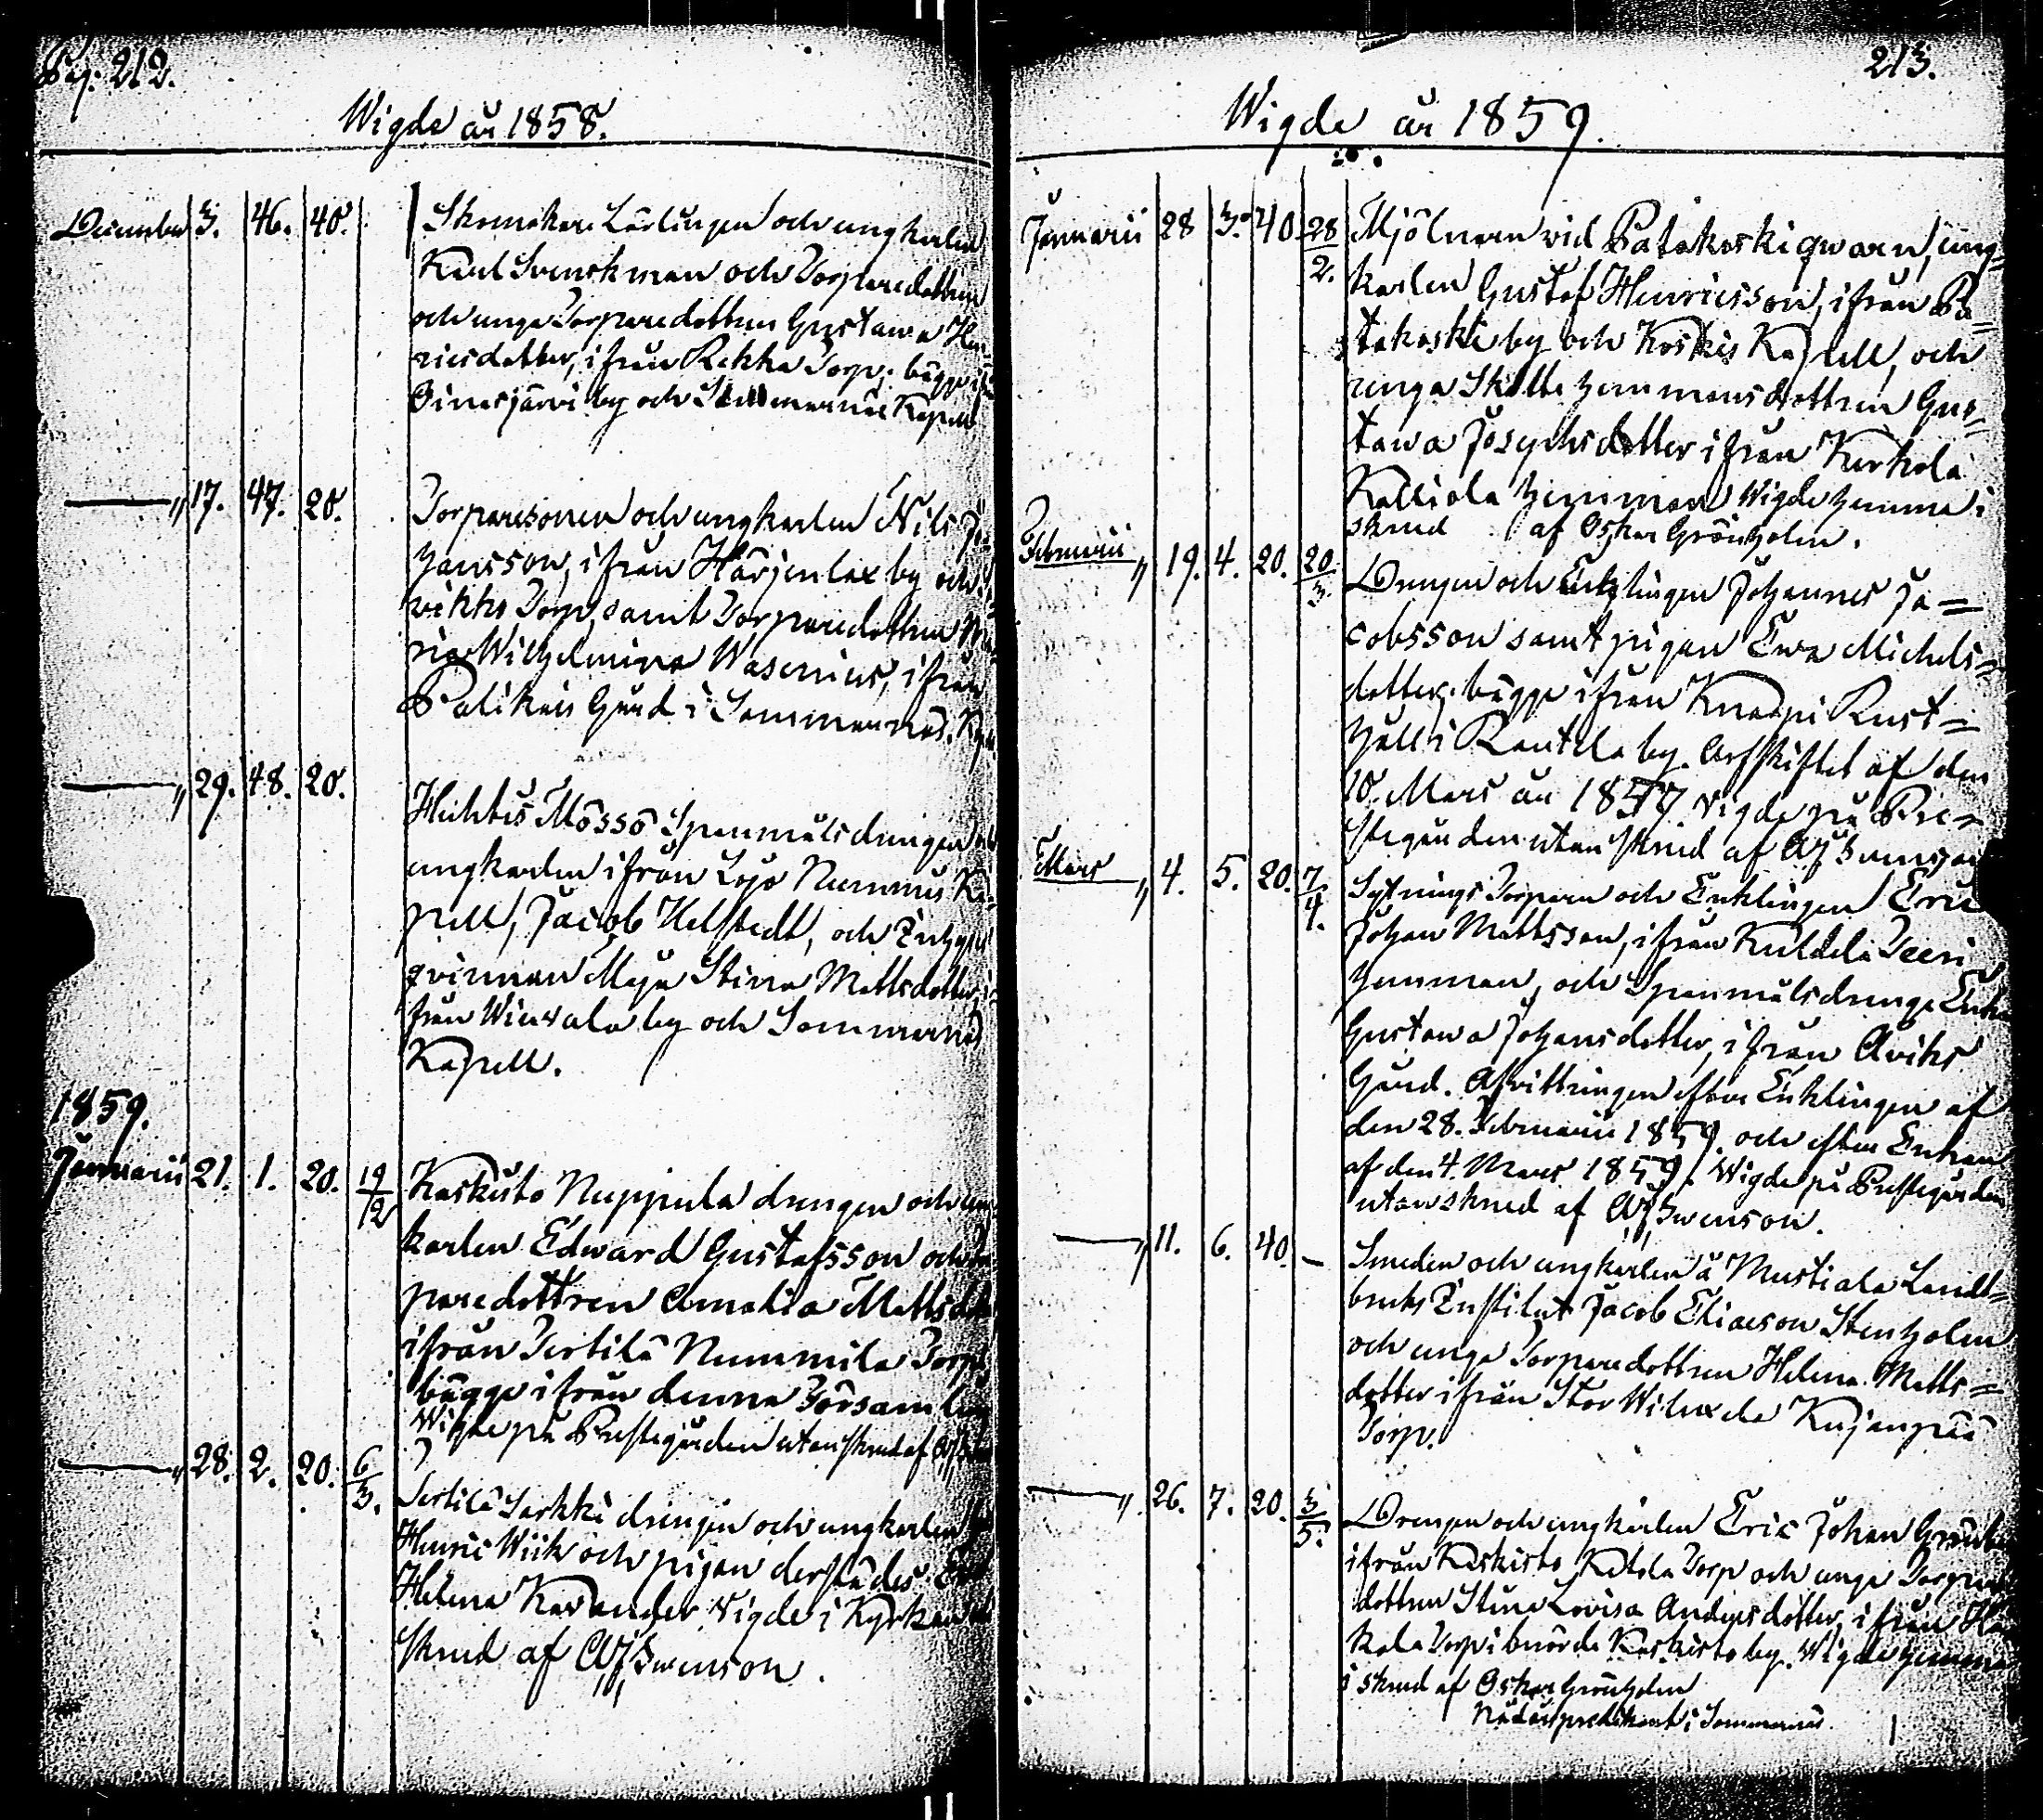 Pag. 212.
Wigde år 1858.
December 3. 46. 40. Skomakare Lärlingen och ungkarlen
Karl Svenskman och Torparedottren
och unga Torparedottren Gustawa Hen-
ricsdotter, ifrån Rekka Torp; bägge ifrån
Oinasjärvi by och Sommarnäs Kapell
—„ 17. 47. 20. Torparesonen och ungkarlen Nils Jo-
hansson, ifrån Härjenlax by och
wikko Torp, samt Torparedottren Ma-
ria Wilhelmina Wasenius, ifrån
Palikais Gård i Sommarnäs Kapell
—„ 29. 48. 20. Huhtis Mössö Spanmålsdrengen och
ungkarlen ifrån Lojo Nummis Ka-
pell, Jacob Helstedt, och Inhyses
qvinnan Maja Stina Mattsdotter, i-
från Wiuvala by och Sommarnäs
Kapell.
1859.
Januarii 21. 1. 20. 19/12 Kaskisto Nuppula drengen och ung
karlen Edward Gustafsson och Tor
paredottren Amalia Mattsdotter
ifrån Tertilä Nummila Torp,
bägge ifrån denna Församling
Wigde på Prestegården utan skrud af
—„ 28. 2. 20. 6/3. Tertilä Sarkki drengen och ungkarlen
Henric Wiik och pigan derstädes
Helena Karander. Vigde i Kyrkan
skrud af AJSwenson.
213.
Wigde år 1859.
Januarii 28 3. 40 28/2. Mjölnaren vid Patakoski qwarn, ung-
karlen Gustaf Henricsson, ifrån Pa-
takoski by och Koskis Kapell, och
unga Skatte hemmansdottren Gus-
tawa Josephsdotter ifrån Kerkola
Kalliola hemman Wigde hemma i
skrud af Oskar Grönholm.
Februarii „ 19. 4. 20. 20/3. Drengen och Enklingen Johannes Ja-
cobsson samt pigan Ewa Michels-
dotter, bägge ifrån Knaapi Rust-
håll i Rautela by. Arfskiftet af den
10. Mars år 1857. Vigde på Pre-
stegården utan skrud af AJSwenson
Mars „ 4. 5. 20. 7/4. Sytnings Torparen och Enklingen Eric
Johan Mattsson, ifrån Kuldela Seeri
hemman, och Spanmålsdrenge Enkan
Gustawa Johansdotter, ifrån Aviks
Gård. Afvittringen efter Enklingen af
den 28. Februarii 1859. och efter Enkan
af den 4. Mars 1859. Wigde på Prestegården
utan skrud af AJSwenson.
—„ 11. 6. 40. – Smeden och ungkarlen å Mustiala Landt-
bruks Institut Jacob Eliaeson Stenholm
och unga Torparedottren Helena Matts-
dotter ifrån Stor Wiluxela Kujanpää
Torp.
—„ 26. 7. 20. 3/5. Drengen och ungkarlen Eric Johan
ifrån Kaskisto Katela Torp och unga Torpare
dottren Stina Lovisa Andersdotter, ifrån
kala Torp i berörda Kaskisto by. Wigde hemma
i skrud af Oskar Grönholm
Nådårspredikant i Sommarnäs.